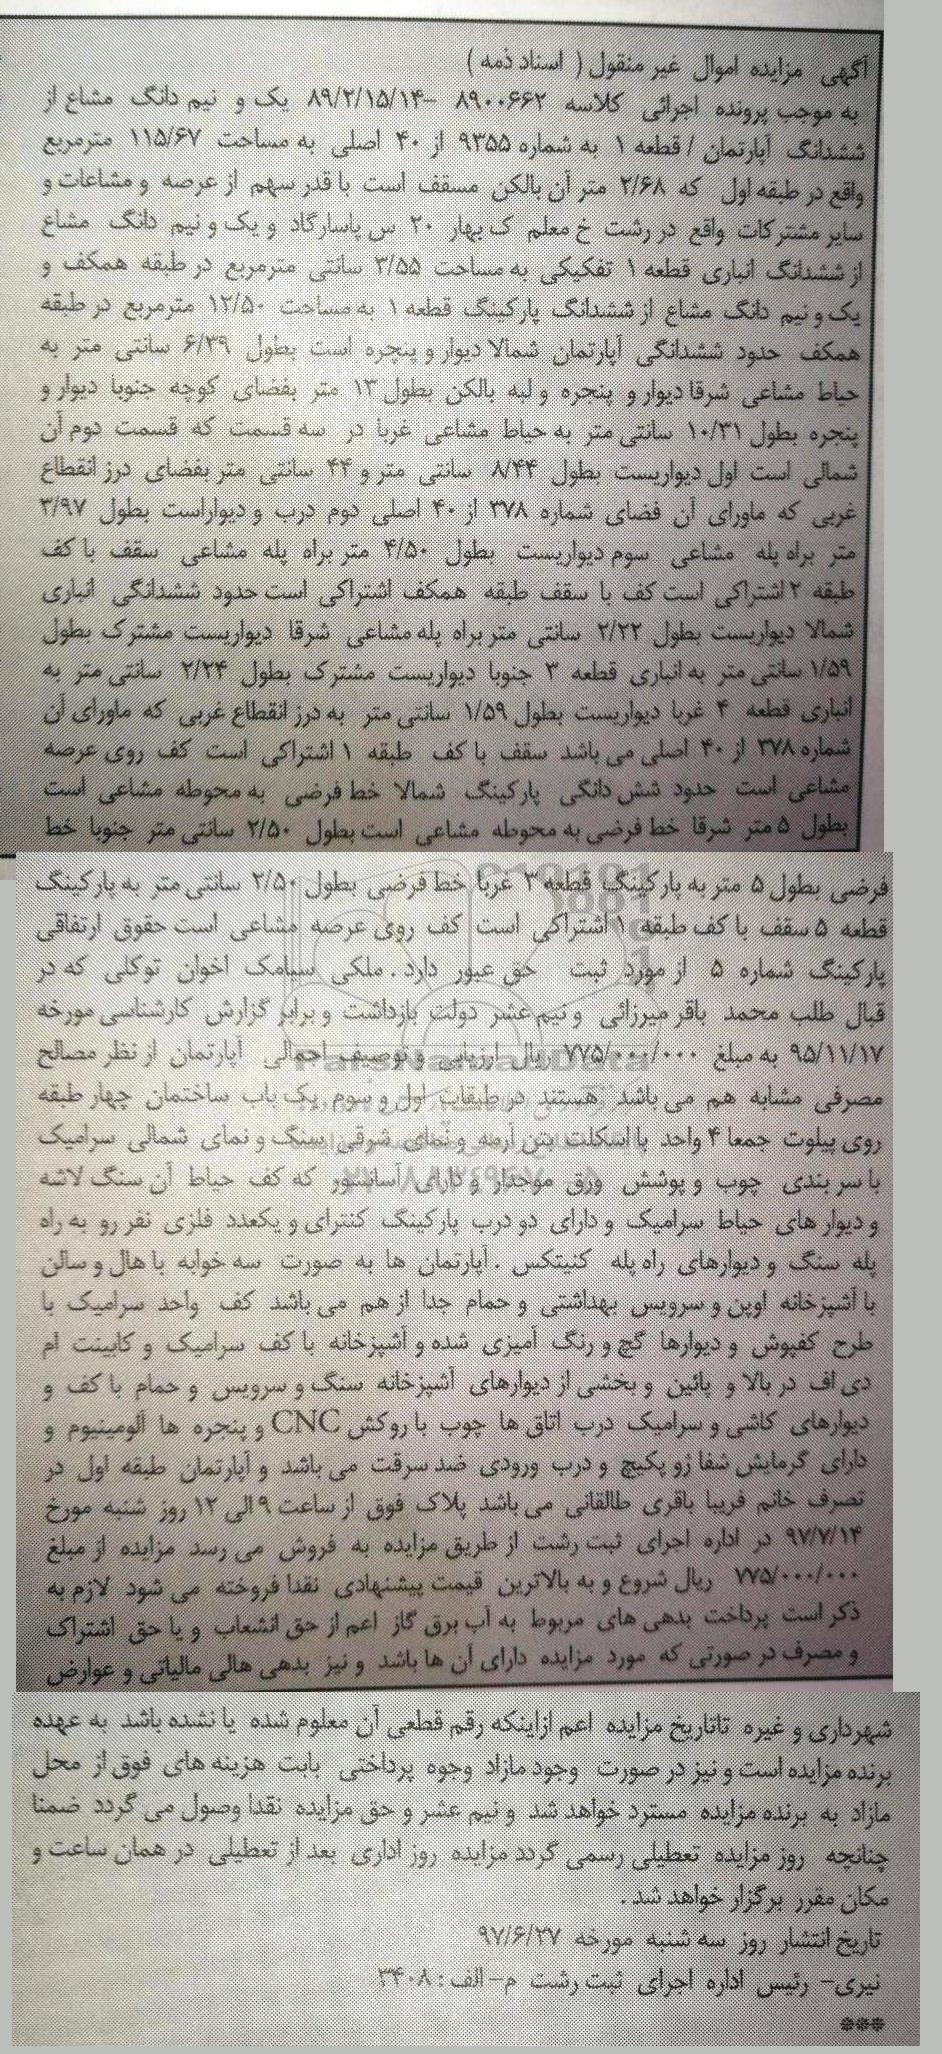 آگهی مزایده اموال غیر منقول ( اسناد ذمه )
به موجب پرونده اجرائی کلاسه ۸۹۰۰۶۶۲ –۸۹/۲/۱۵/۱۴ یک و نیم دانگ مشاع از
ششدانگ آپارتمان / قطعه ۱ به شماره ۹۳۵۵ از ۴۰ اصلی به مساحت ۱۱۵/۶۷ مترمربع
واقع در طبقه اول که ۲/۶۸ متر آن بالکن مسقف است با قدر سهم از عرصه و مشاعات و
سایر مشترکات واقع در رشت خ معلم ک بهار ۲۰ س پاسارگاد و یک و نیم دانگ مشاع
از ششدانگ انباری قطعه ۱ تفکیکی به مساحت ۳/۵۵ سانتی مترمربع در طبقه همکف و
یک و نیم دانگ مشاع از ششدانگ پارکینگ قطعه ۱ به مساحت ۱۲/۵۰ مترمربع در طبقه
همکف حدود ششدانگی آپارتمان شمالا دیوار و پنجره است بطول ۶/۳۹ سانتی متر به
حیاط مشاعی شرقا دیوار و پنجره و لبه بالکن بطول ۱۳ متر بفضای کوچه جنوبا دیوار و
پنجره بطول ۱۰/۳۱ سانتی متر به حیاط مشاعی غربا در سه قسمت که قسمت دوم آن
شمالی است اول دیواریست بطول ۸/۴۴ سانتی متر و ۴۴ سانتی متر بفضای درز انقطاع
غربی که ماورای آن فضای شماره ۳۷۸ از ۴۰ اصلی دوم درب و دیواراست بطول ۳/۹۷
متر براه پله مشاعی سوم دیواریست بطول ۴/۵۰ متر براه پله مشاعی سقف با کف
طبقه ۲ اشتراکی است کف با سقف طبقه همکف اشتراکی است حدود ششدانگی انباری
شمالا دیواریست بطول ۲/۲۲ سانتی متر براه پله مشاعی شرقا دیواریست مشترک بطول
۱/۵۹ سانتی متر به انباری قطعه ۳ جنوبا دیواریست مشترک بطول ۲/۲۴ سانتی متر به
انباری قطعه ۴ غربا دیواریست بطول ۱/۵۹ سانتی متر به درز انقطاع غربی که ماورای آن
شماره ۳۷۸ از ۴۰ اصلی می باشد سقف با کف طبقه ۱ اشتراکی است کف روی عرصه
مشاعی است حدود شش دانگی پارکینگ شمالا خط فرضی به محوطه مشاعی است
بطول ۵ متر شرقا خط فرضی به محوطه مشاعی است بطول ۲/۵۰ سانتی متر جنوبا خط
فرضی بطول ۵ متر به پارکینگ قطعه ۳ غربا خط فرضی بطول ۲/۵۰ سانتی متر به پارکینگ
قطعه ۵ سقف با کف طبقه ۱ اشتراکی است کف روی عرصه مشاعی است حقوق ارتفاقی
پارکینگ شماره ۵ از مورد ثبت حق عبور دارد . ملکی سیامک اخوان توکلی که در
قبال طلب محمد باقر میرزائی و نیم عشر دولت بازداشت و برابر گزارش کارشناسی مورخه
۹۵/۱۱/۱۷ به مبلغ ۷۷۵/۰۰۰/۰۰۰ ریال ارزیابی و توصیف اجمالی آپارتمان از نظر مصالح
مصرفی مشابه هم می باشد هستند در طبقات اول و سوم یک باب ساختمان چهار طبقه
روی پیلوت جمعا ۴ واحد با اسکلت بتن آرمه و نمای شرقی سنگ و نمای شمالی سرامیک
با سر بندی چوب و پوشش ورق موجدار و دارای آسانسور که کف حیاط آن سنگ لاشه
و دیوار های حیاط سرامیک و دارای دو درب پارکینگ کنترای و یکعدد فلزی نفر رو به راه
پله سنگ و دیوارهای راه پله کنیتکس . آپارتمان ها به صورت سه خوابه با هال و سالن
با آشپزخانه اوپن و سرویس بهداشتی و حمام جدا از هم می باشد کف واحد سرامیک با
طرح کفپوش و دیوارها گچ و رنگ آمیزی شده و آشپزخانه با کف سرامیک و کابینت ام
دی اف در بالا و پائین و بخشی از دیوارهای آشپزخانه سنگ و سرویس و حمام با کف و
دیوارهای کاشی و سرامیک درب اتاق ها چوب با روکش CNC و پنجره ها آلومینیوم و
دارای گرمایش شفا ژو پکیج و درب ورودی ضد سرقت می باشد و آپارتمان طبقه اول در
تصرف خانم فریبا باقری طالقانی می باشد پلاک فوق از ساعت ۹ الی ۱۲ روز شنبه مورخ
۹۷/۷/۱۴ در اداره اجرای ثبت رشت از طریق مزایده به فروش می رسد مزایده از مبلغ
۷۷۵/۰۰۰/۰۰۰ ریال شروع و به بالاترین قیمت پیشنهادی نقدا فروخته می شود لازم به
ذکر است پرداخت بدهی های مربوط به آب برق گاز اعم از حق انشعاب و یا حق اشتراک
و مصرف در صورتی که مورد مزایده دارای آن ها باشد و نیز بدهی هالی مالیاتی و عوارض
شهرداری و غیره تاتاریخ مزایده اعم ازاینکه رقم قطعی آن معلوم شده یا نشده باشد به عهده
برنده مزایده است و نیز در صورت وجود مازاد وجوه پرداختی بابت هزینه های فوق از محل
مازاد به برنده مزایده مسترد خواهد شد و نیم عشر و حق مزایده نقدا وصول می گردد ضمنا
چنانچه روز مزایده تعطیلی رسمی گردد مزایده روز اداری بعد از تعطیلی در همان ساعت و
مکان مقرر برگزار خواهد شد .
تاریخ انتشار روز سه شنبه مورخه ۹۷/۶/۲۷
نیری– رئیس اداره اجرای ثبت رشت م– الف : ۳۴۰۸
***